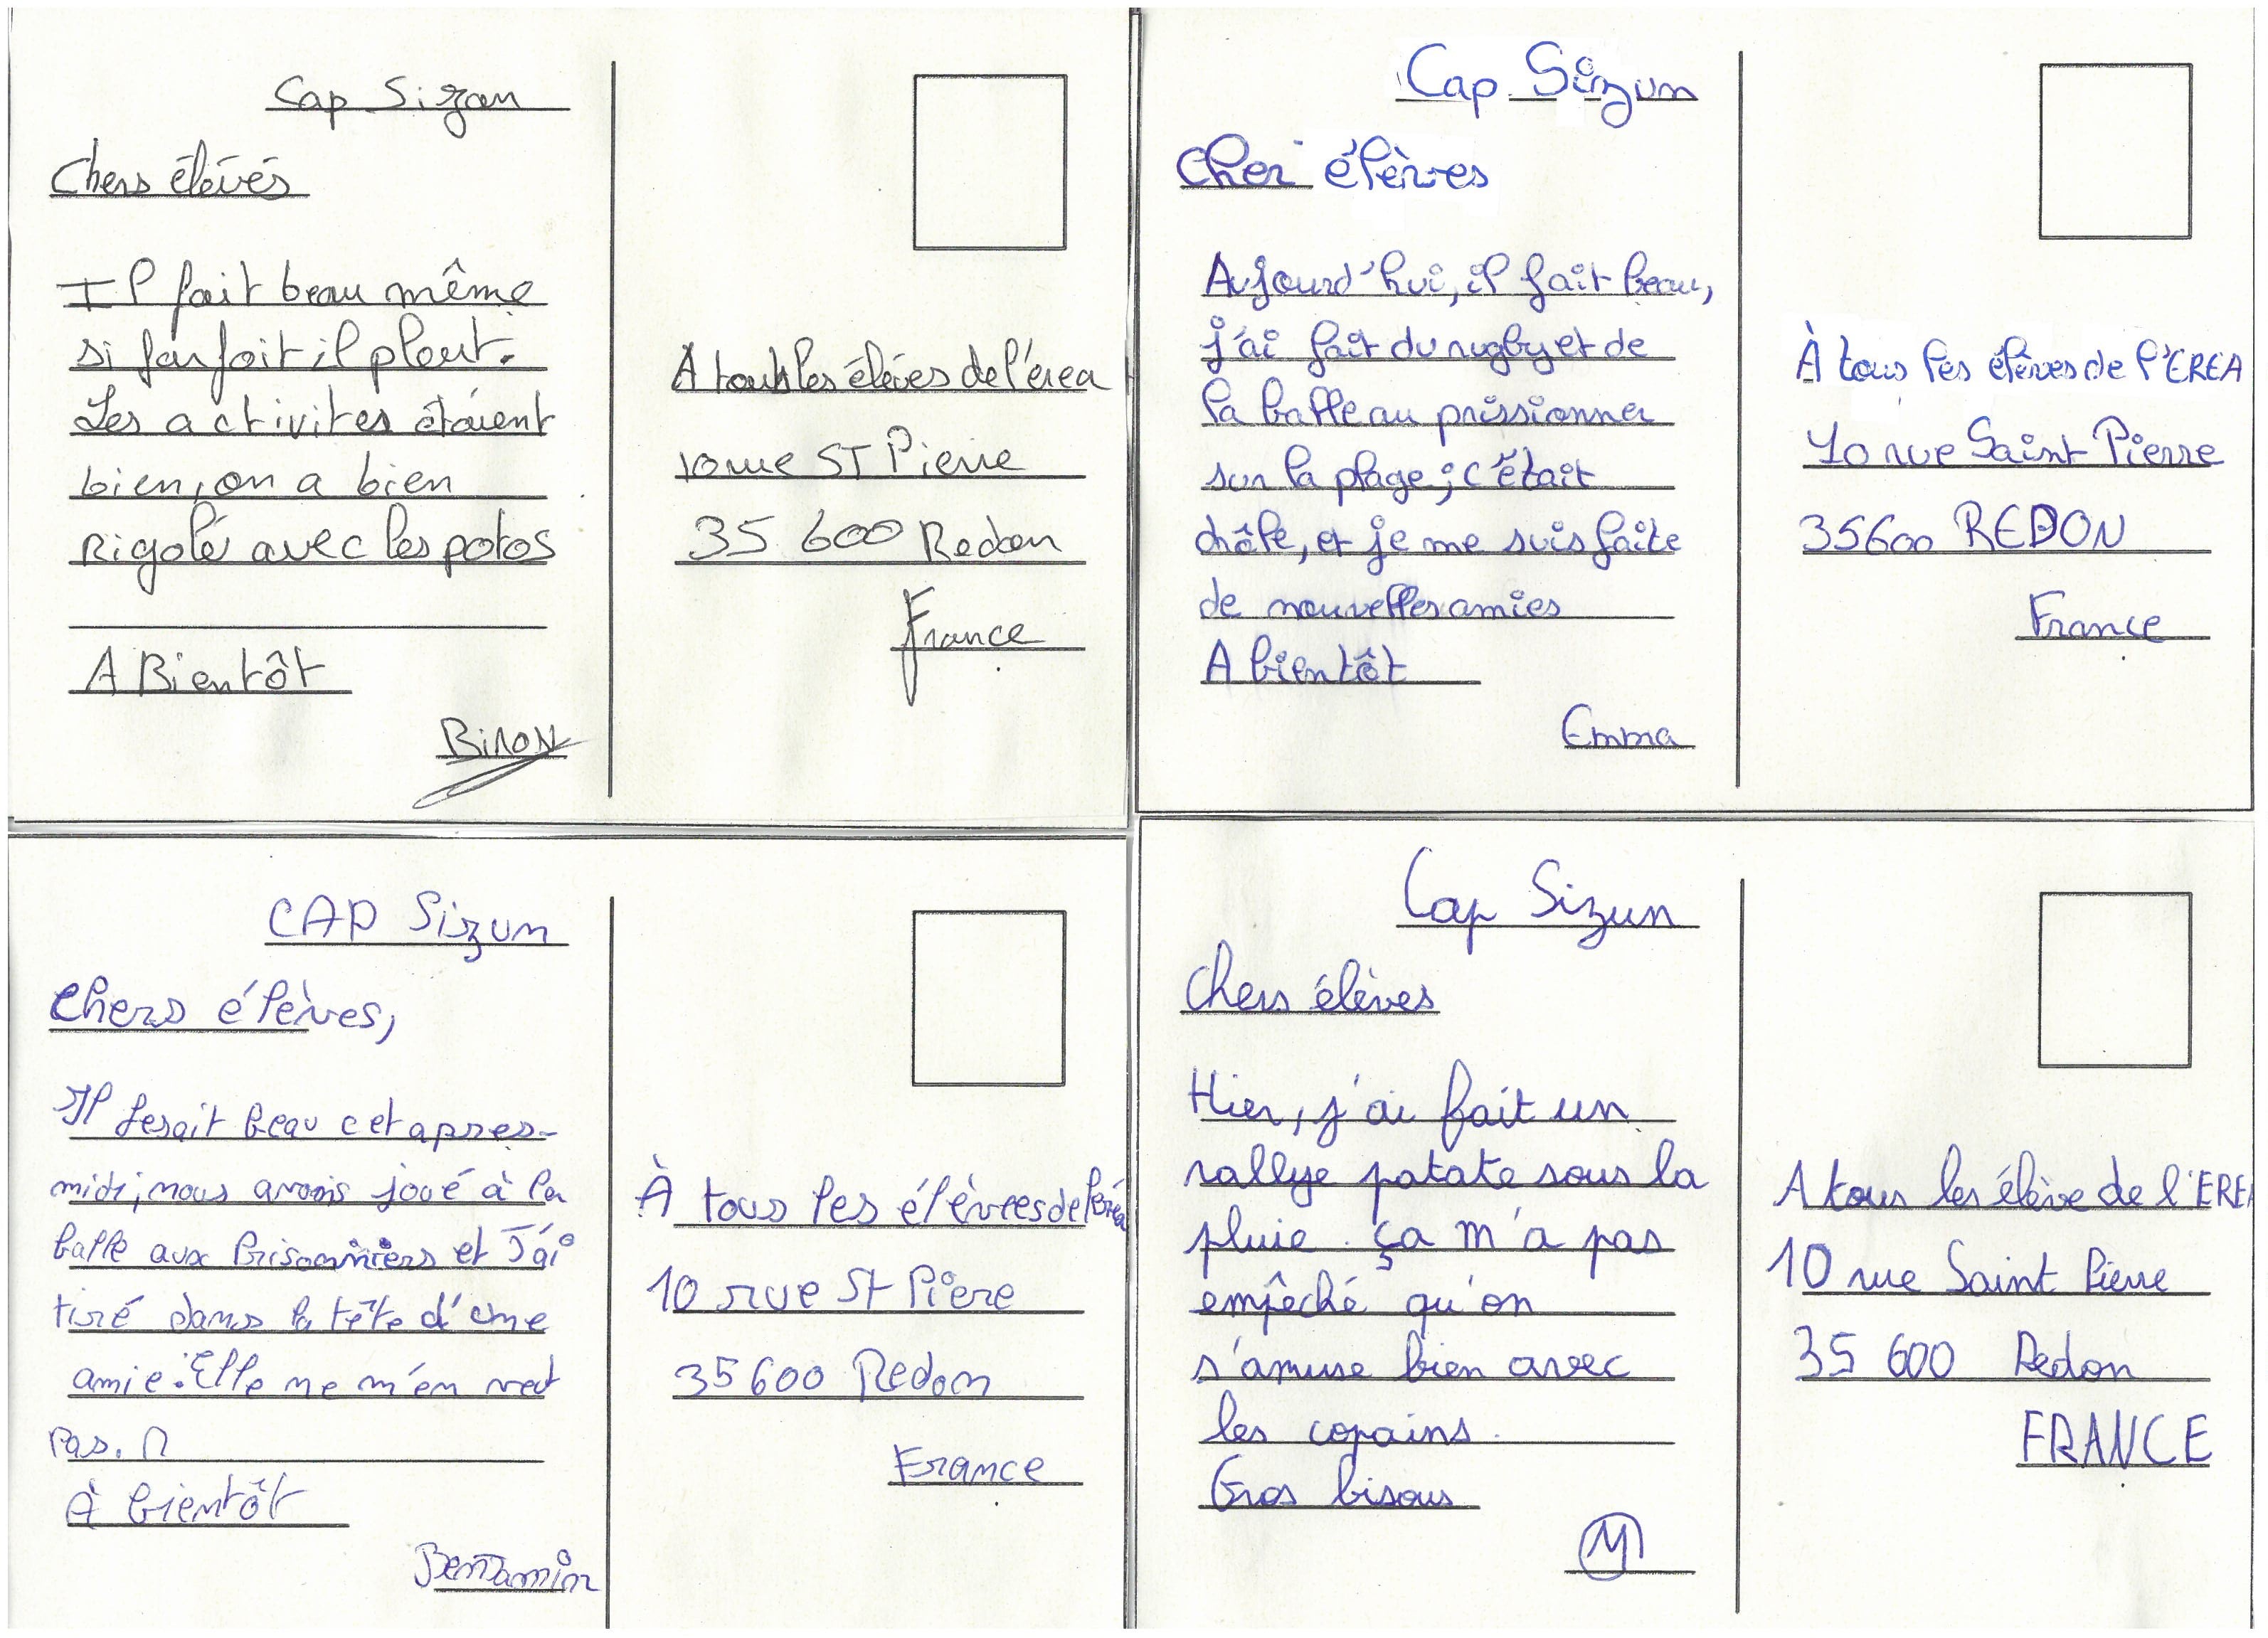 Cap Sizun
Chers élévés
Il fait beau même
si farfoit il pleut.
Les activites étaient
bien, on a bien
Rigolé avec les potos
A Bientôt
BiRON
A tous les élèves de l'érea
10 rue ST Pierre
35 600 Redon
France
Cap Sizun
Cher élèves
Aujourd'hui, il fait beau,
j'ai fait du rugby et de
la balle au prissionner
sur la plage; c'était
drôle, et je me suis faite
de nouvelles amies
A bientôt
Emma
À tous les élèves de l'EREA
10 rue Saint Pierre
35600 REDON
France
CAP Sizun
Chers élèves,
Il fesait beau cet apres-
midi, nous avons joué à la
balle aux Prisonniers et J'ai
tiré dans la tête d'une
amie. Elle ne m'en veut
Pas.
À bientôt
Benjamin
À tous les élèvees de l'éréa
10 rue St Pière
35600 Redon
France
Cap Sizun
Chers élèves
Hier, j'ai fait un
rallye patate sous la
pluie. ça m'a pas
empêché qu'on
s'amuse bien avec
les copains.
Gros bisous
M
A tous les élève de l'EREA
10 rue Saint Pierre
35 600 Redon
FRANCE